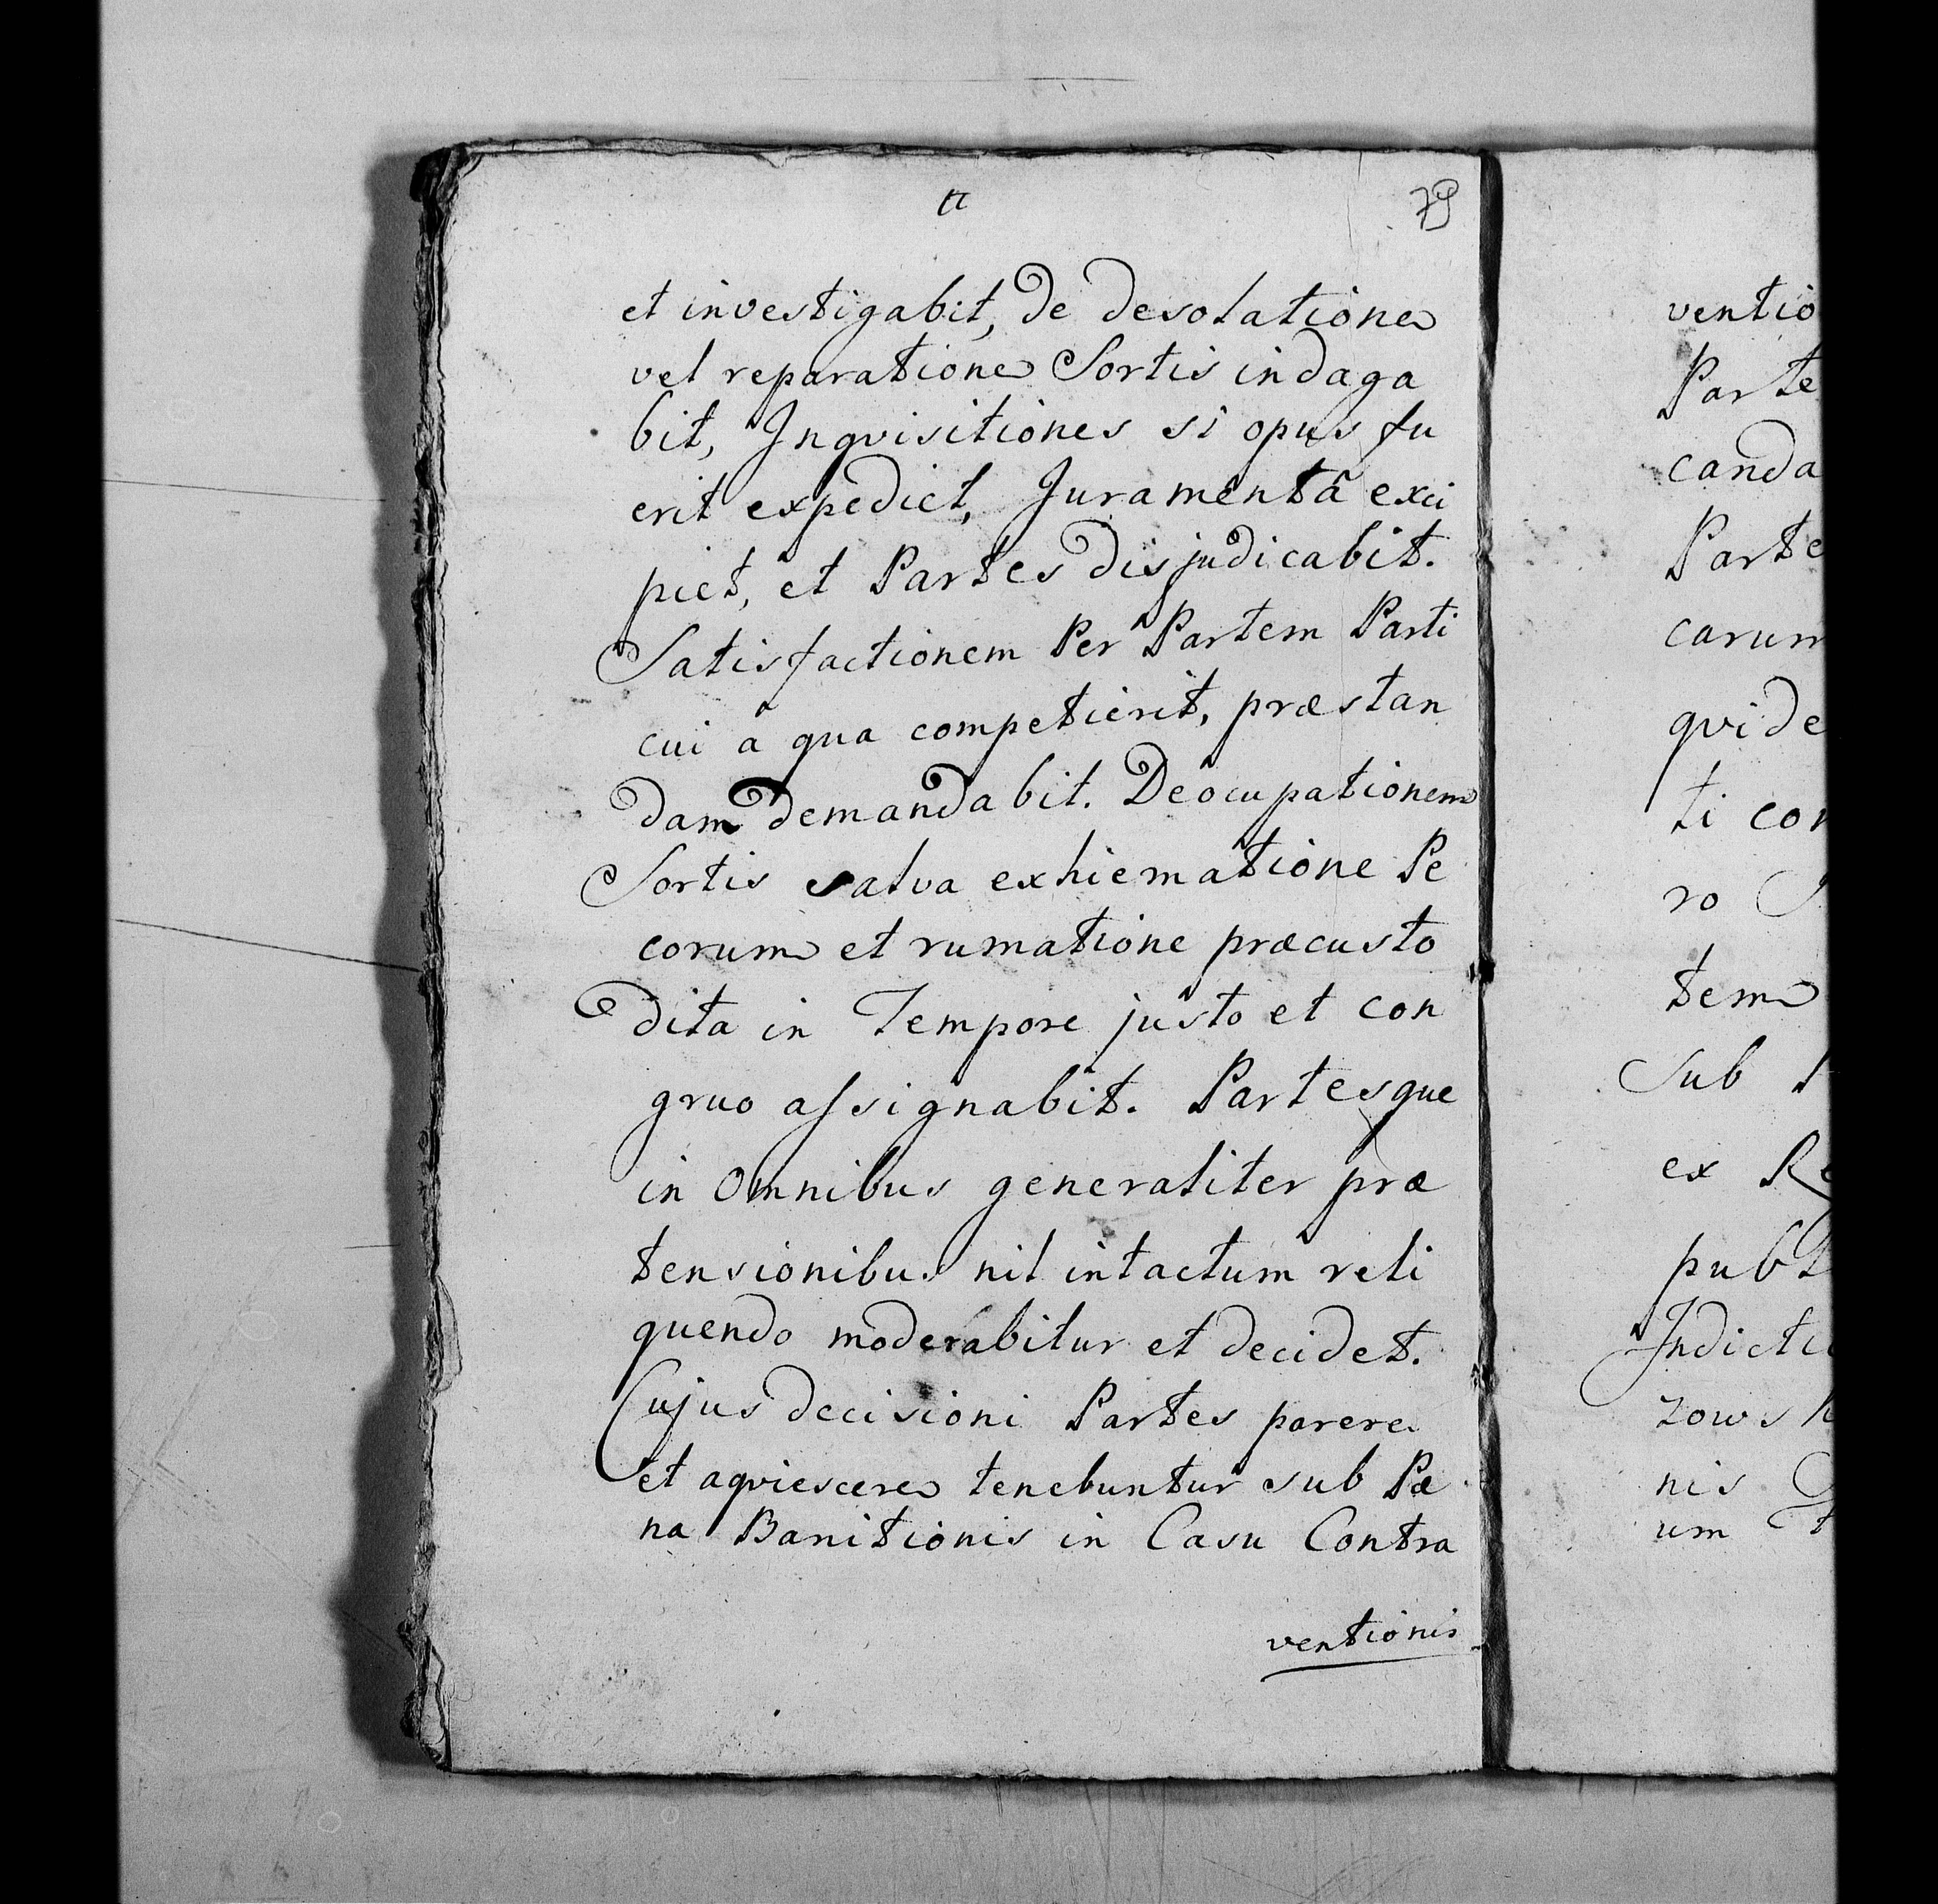 79
et investigabit, de desolatione
vel reparatione Sortis indaga
bit, Inqvisitiones si opus fu
erit expediet, Juramenta exci
piet, et Partes disjudicabit.
Satisfactionem Per Partem Parti
cui a qua competierit, præstan
dam demandabit. Deocupationem
Sortis salva exhiematione Pe
corum et rumatione præcusto
dita in Tempore justo et con
gruo assignabit. Partesque
in Omnibus generaliter præ
tensionibus nil intactum reli
quendo moderabitur et decidet.
Cujus decisioni Partes parere
et aqviescere tenebuntur sub Pæ
na Banitionis in Casu Contra
ventionis
ventio
Parte
canda
Parte
carum
qvide
ti con
ro
tem
Sub
ex Re
publ
Indicti
zowsk
nis
um